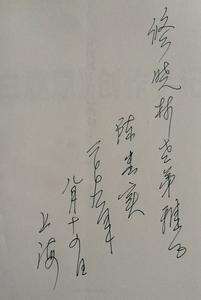 修晓林老弟雅正
陈忠实
二〇〇九年
八月十九日
上海